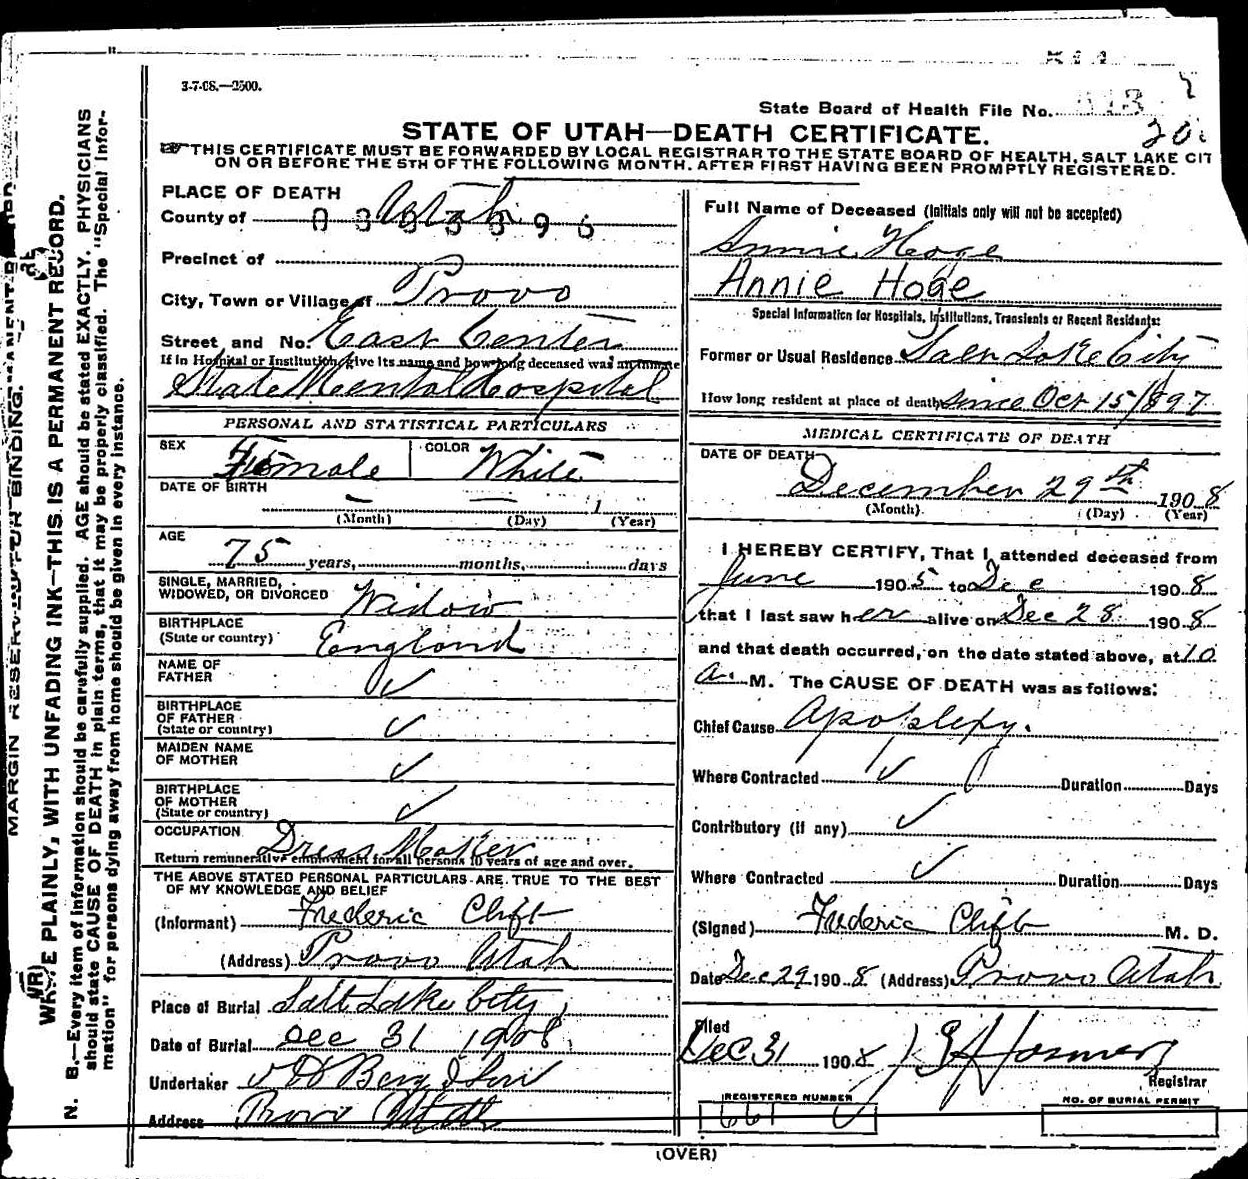 3-7-08.—2500.
State Board of Health File No.
STATE OF UTAH—DEATH CERTIFICATE.
THIS CERTIFICATE MUST BE FORWARDED BY LOCAL REGISTRAR TO THE STATE BOARD OF HEALTH, SALT LAKE CIT
ON OR BEFORE THE 5TH OF THE FOLLOWING MONTH, AFTER FIRST HAVING BEEN PROMPTLY REGISTERED.
MARGIN RESERVED FOR BINDING.
WRITE PLAINLY, WITH UNFADING INK—THIS IS A PERMANENT RECORD.
N. B.—Every item of information should be carefully supplied. AGE should be stated EXACTLY. PHYSICIANS
should state CAUSE OF DEATH in plain terms, that it may be properly classified. The "Special Infor-
mation" for persons dying away from home should be given in every instance.
PLACE OF DEATH
County of Utah
Precinct of
City, Town or Village of Provo
Street and No. East Center
If in Hospital or Institution, give its name and how long deceased was an inmate
State Mental Hospital
PERSONAL AND STATISTICAL PARTICULARS
SEX Female COLOR White
DATE OF BIRTH
(Month) (Day) (Year)
AGE
75 years, months, days
SINGLE, MARRIED,
WIDOWED, OR DIVORCED Widow
BIRTHPLACE
(State or country) England
NAME OF
FATHER ✓
BIRTHPLACE
OF FATHER
(State or country) ✓
MAIDEN NAME
OF MOTHER ✓
BIRTHPLACE
OF MOTHER
(State or country) ✓
OCCUPATION Dress Maker
Return remunerative employment for all persons 10 years of age and over.
THE ABOVE STATED PERSONAL PARTICULARS ARE TRUE TO THE BEST
OF MY KNOWLEDGE AND BELIEF
(Informant) Frederic Clift
(Address) Provo Utah
Place of Burial Salt Lake City
Date of Burial Dec 31 1908
Undertaker Berg & Son
Address Provo Utah
Full Name of Deceased (Initials only will not be accepted)
Annie Hoge
Annie Hoge
Special Information for Hospitals, Institutions, Transients or Recent Residents:
Former or Usual Residence Salt Lake City
How long resident at place of death since Oct 15/897
MEDICAL CERTIFICATE OF DEATH
DATE OF DEATH
December 29th 1908
(Month) (Day) (Year)
I HEREBY CERTIFY, That I attended deceased from
June 1905 to Dec 1908
that I last saw her alive on Dec 28 1908
and that death occurred, on the date stated above, at 10
a. M. The CAUSE OF DEATH was as follows:
Chief Cause Apoplexy.
Where Contracted ✓ Duration Days
Contributory (if any) ✓
Where Contracted ✓ Duration Days
(Signed) Frederic Clift M. D.
Date Dec 29 1908 (Address) Provo Utah
Filed
Dec 31 1908
Registrar
REGISTERED NUMBER
661
NO. OF BURIAL PERMIT
(OVER)